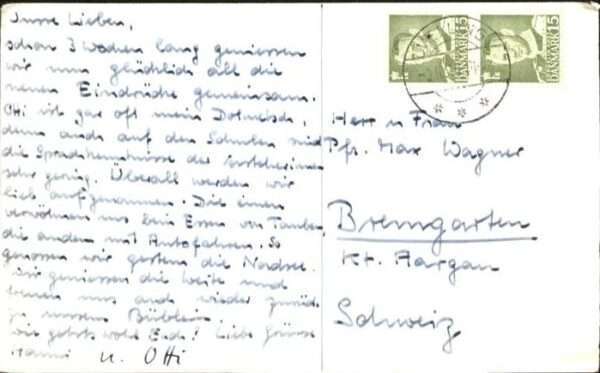 Unsre Lieben,
schon 3 Wochen lang geniessen
wir nun glücklich all die
neuen Eindrücke gemeinsam.
Otti ist gar oft mein Dolmetsch,
denn auch auf den Schulen sind
die Sprachkenntnisse der
sehr gering. Überall werden wir
lieb aufgenommen. Die einen
verwöhnen uns beim Essen von Tauben,
die andern mit Autofahren. So
genossen wir gestern die Nordsee.
Wir geniessen die Weite und
uns auch wieder zurück
zu unsern Büblein.
Wie gehts wohl Euch? Liebe Grüsse
Hanni u. Otti
DANMARK 15
DANMARK 15
Herr u Frau
Pfr. Max Wagner
Bremgarten
Kt. Aargau
Schweiz